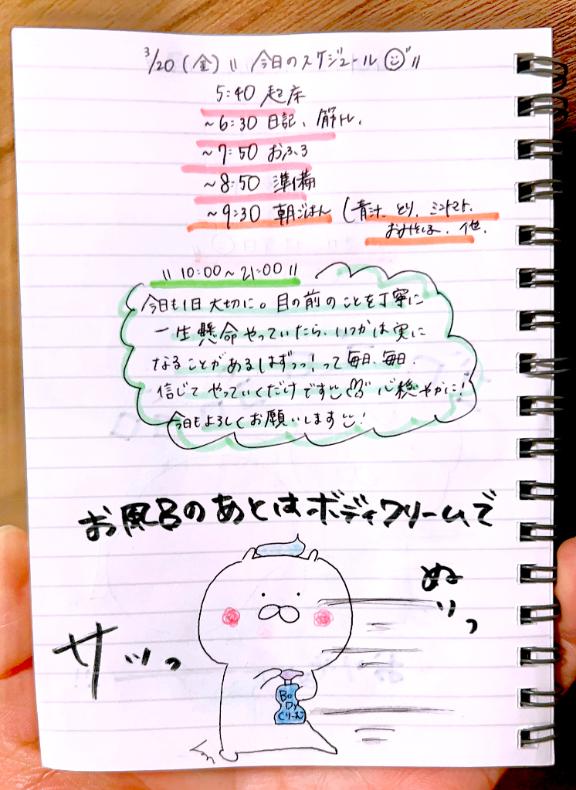 3/20(金) " 今日のスケジュール "
5:40 起床
~6:30 日記、筋トレ、
~7:50 おふろ
~8:50 準備
~9:30 朝ごはん (青汁、とり、ミニトマト、
おみそしる、他、
" 10:00~21:00 "
今日も1日大切に。目の前のことを丁寧に
一生懸命やっていたら、いつかは実に
なることがあるはずっっ!って毎日、毎日、
信じてやっていくだけです 心穏やかに!
今日もよろしくお願いします!
お風呂のあとはボディクリームで
ぬりっ
サッッ
Bo
Dy
クリーム